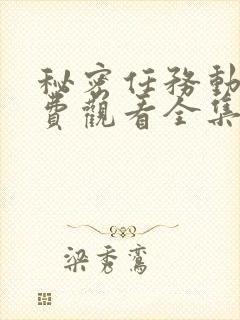 秘密任務動
費觀看全集
梁秀鸞